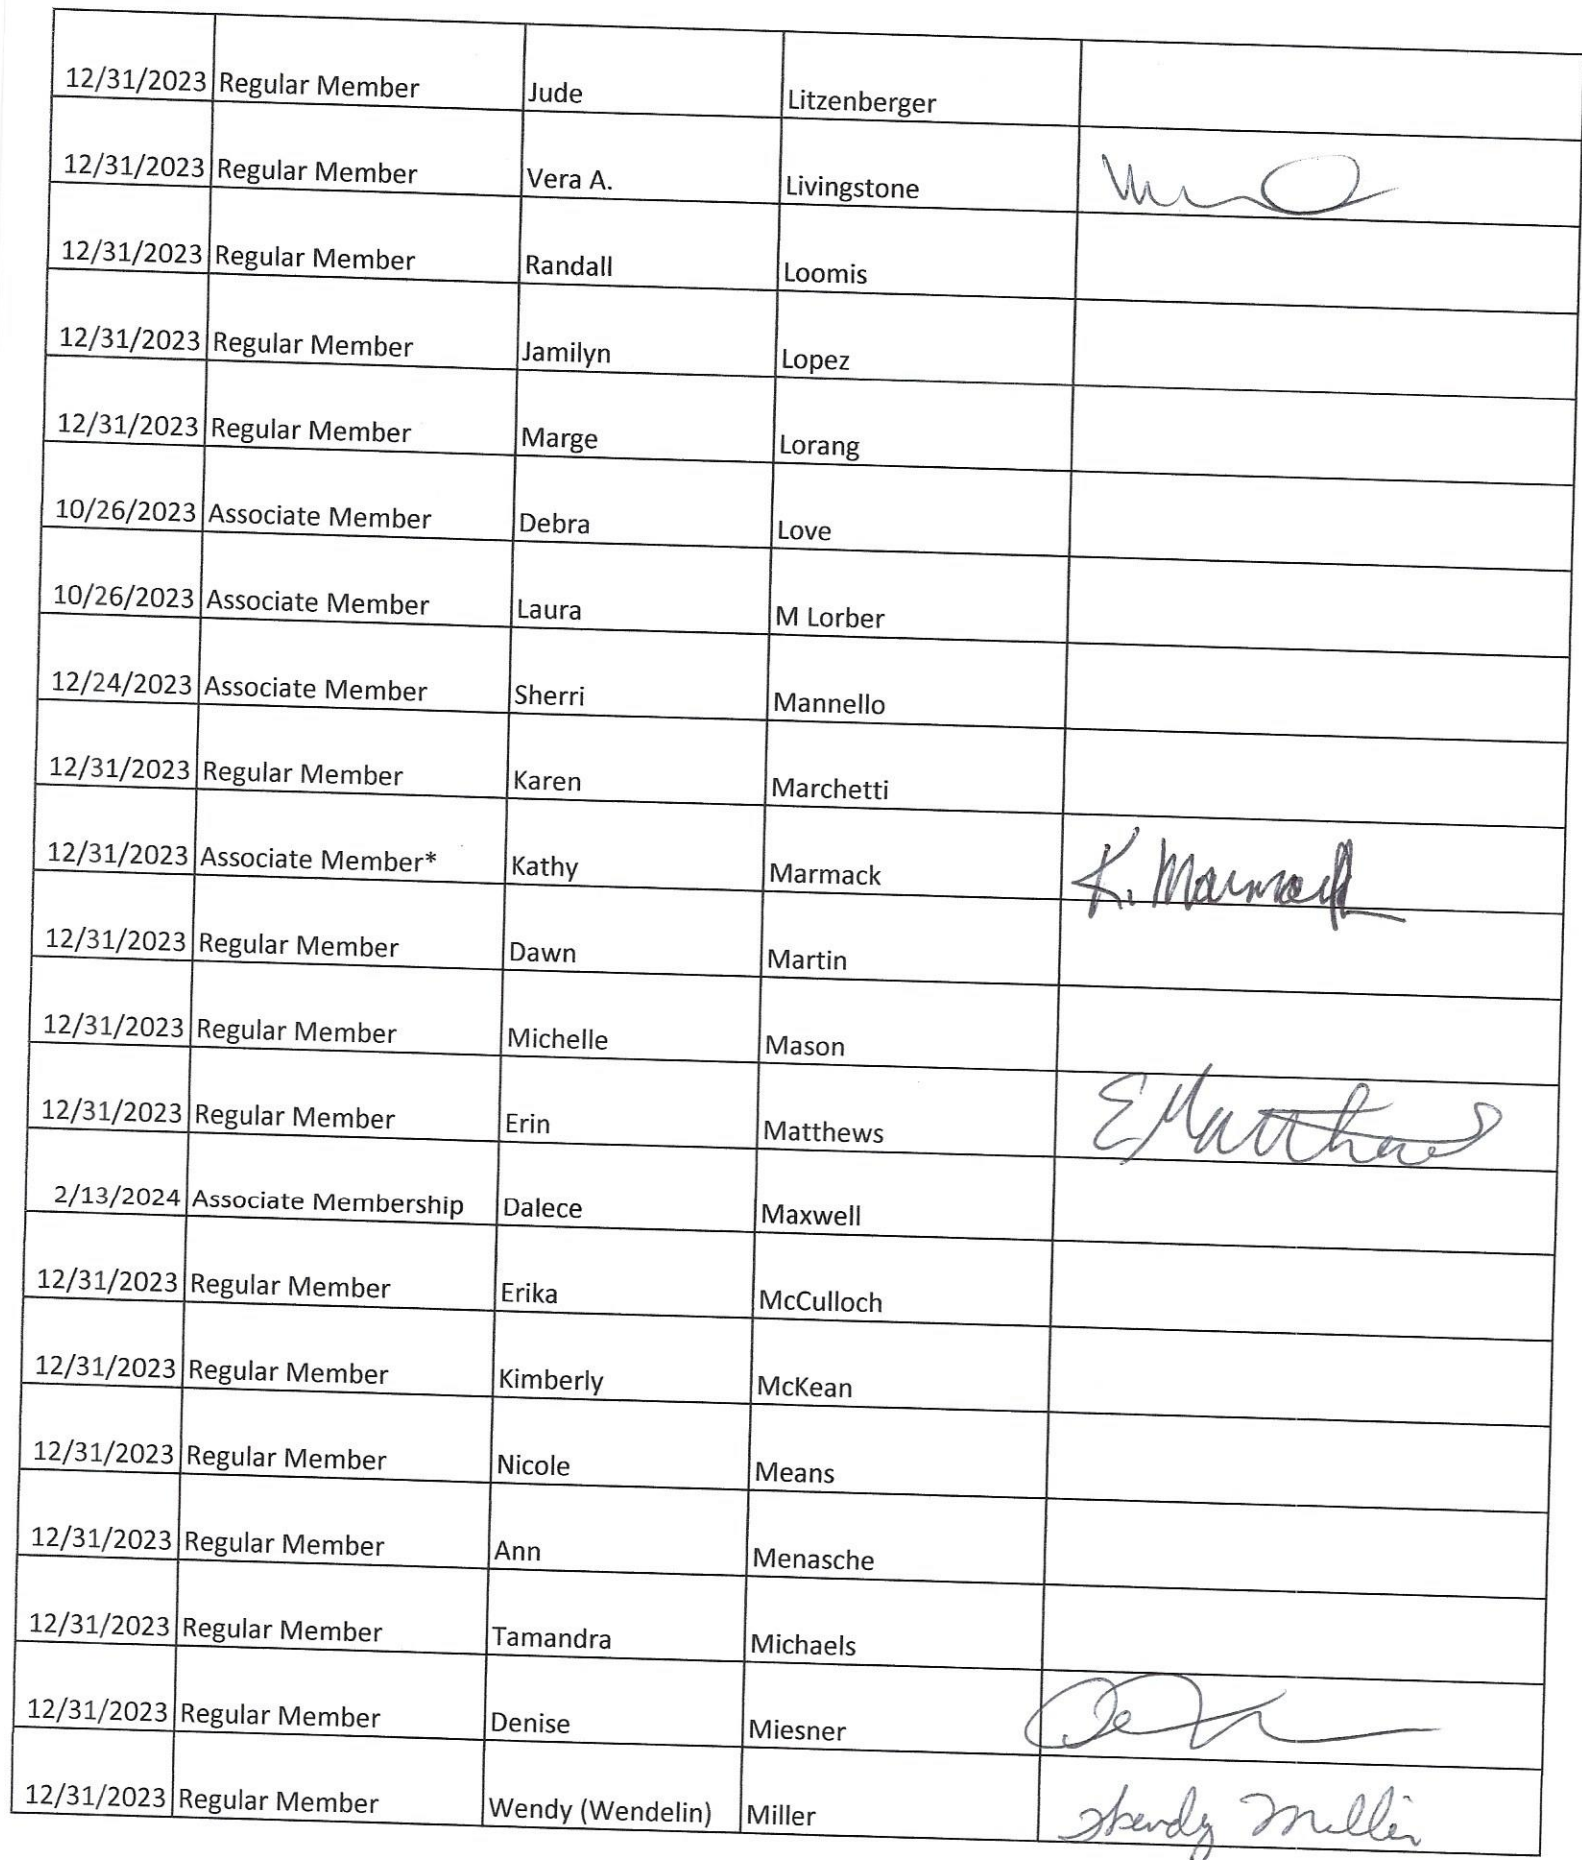 12/31/2023 Regular Member Jude Litzenberger
12/31/2023 Regular Member Vera A. Livingstone
12/31/2023 Regular Member Randall Loomis
12/31/2023 Regular Member Jamilyn Lopez
12/31/2023 Regular Member Marge Lorang
10/26/2023 Associate Member Debra Love
10/26/2023 Associate Member Laura M Lorber
12/24/2023 Associate Member Sherri Mannello
12/31/2023 Regular Member Karen Marchetti
12/31/2023 Associate Member* Kathy Marmack K. Marmack
12/31/2023 Regular Member Dawn Martin
12/31/2023 Regular Member Michelle Mason
12/31/2023 Regular Member Erin Matthews E Matthews
2/13/2024 Associate Membership Dalece Maxwell
12/31/2023 Regular Member Erika McCulloch
12/31/2023 Regular Member Kimberly McKean
12/31/2023 Regular Member Nicole Means
12/31/2023 Regular Member Ann Menasche
12/31/2023 Regular Member Tamandra Michaels
12/31/2023 Regular Member Denise Miesner
12/31/2023 Regular Member Wendy (Wendelin) Miller Wendy Miller